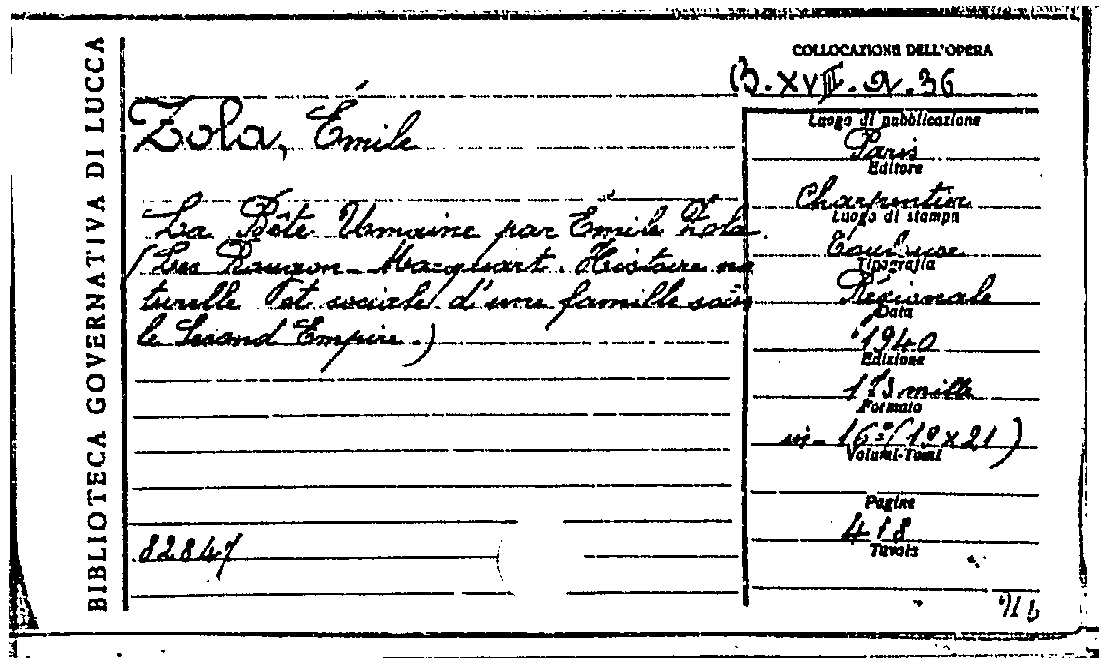 BIBLIOTECA GOVERNATIVA DI LUCCA
COLLOCAZIONE DELL'OPERA
B. XVII. 2. 36
Zola, Émile
La Bête Umaine par Émile Zola.
(Les Rougon-Macquart. Histoire na
turelle et sociale d'une famille sous
le Second Empire.)
82847
Luogo di pubblicazione
Paris
Editore
Charpentier
Luogo di stampa
Toulouse
Tipografia
Régionale
Data
1940
Edizione
173 mille
Formato
in-16º (12x21)
Volumi-Tomi
Pagine
418
Tavole